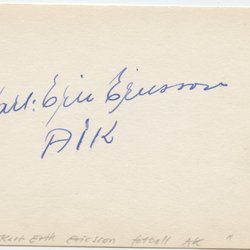 Karl: Erik Ericsson
AIK
Kurt Erik Ericsson fotboll AK